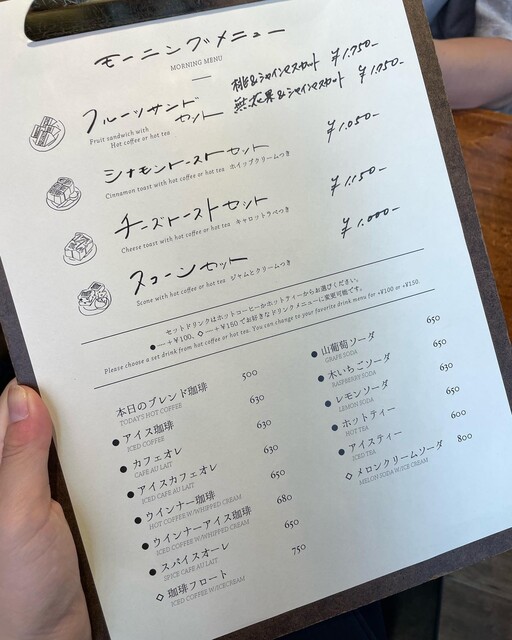 モーニングメニュー
MORNING MENU
フルーツサンドセット
桃&シャインマスカット ¥1.750-
無花果&シャインマスカット ¥1.750-
Fruit sandwich with
Hot coffee or hot tea
シナモントーストセット ¥1.050-
Cinnamon toast with hot coffee or hot tea ホイップクリームつき
チーズトーストセット ¥1.150-
Cheese toast with hot coffee or hot tea キャロットラペつき
スコーンセット ¥1.000-
Scone with hot coffee or hot tea ジャムとクリームつき
セットドリンクはホットコーヒーかホットティーからお選びください。
●—+¥100、◇—+¥150でお好きなドリンクメニューに変更可能です。
Please choose a set drink from hot coffee or hot tea. You can change to your favorite drink menu for +¥100 or +¥150.
本日のブレンド珈琲 500
TODAY'S HOT COFFEE
●アイス珈琲 630
ICED COFFEE
●カフェオレ 630
CAFE AU LAIT
●アイスカフェオレ 630
ICED CAFE AU LAIT
●ウインナー珈琲 650
HOT COFFEE W/WHIPPED CREAM
●ウインナーアイス珈琲 680
ICED COFFEE W/WHIPPED CREAM
●スパイスオーレ 650
SPICE CAFE AU LAIT
◇珈琲フロート 750
ICED COFFEE W/ICECREAM
●山葡萄ソーダ 650
GRAPE SODA
●木いちごソーダ 650
RASPBERRY SODA
●レモンソーダ 630
LEMON SODA
●ホットティー 650
HOT TEA
●アイスティー 600
ICED TEA
◇メロンクリームソーダ 800
MELON SODA W/ICE CREAM